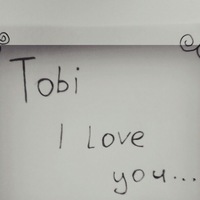 Tobi
I Love
you...